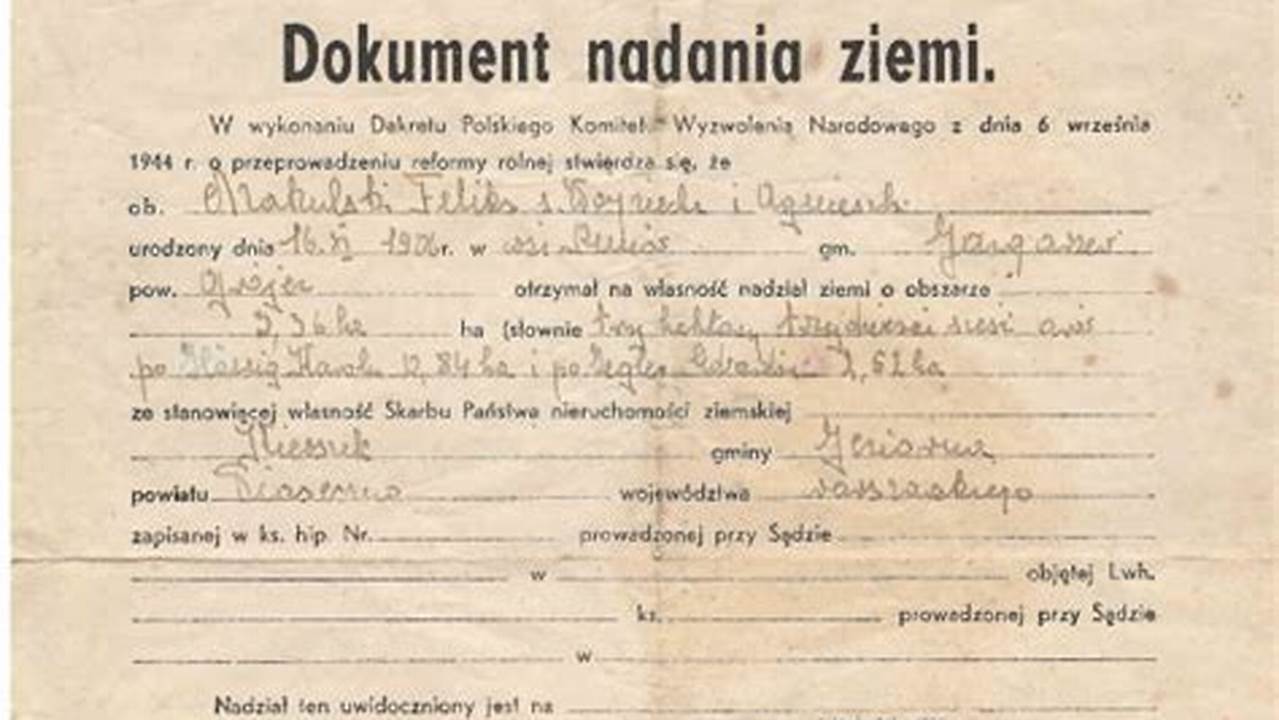 Dokument nadania ziemi.
W wykonaniu Dekretu Polskiego Komitetu Wyzwolenia Narodowego z dnia 6 września
1944 r. o przeprowadzeniu reformy rolnej stwierdza się, że
ob. Makulski Feliks s. Wojciecha i Agnieszki
urodzony dnia 16. XI 1906 r. w wsi gm.
pow. Grójec otrzymał na własność nadział ziemi o obszarze
3,36 ha ha (słownie trzy hektary trzydzieści sześć arów
po Karola 0,84 ha i po 2,52 ha
ze stanowiącej własność Skarbu Państwa nieruchomości ziemskiej
gminy Jeziorna
powiatu Piaseczno województwa warszawskiego
zapisanej w ks. hip. Nr. prowadzonej przy Sądzie
w objętej Lwh.
ks. prowadzonej przy Sądzie
w
Nadział ten uwidoczniony jest na